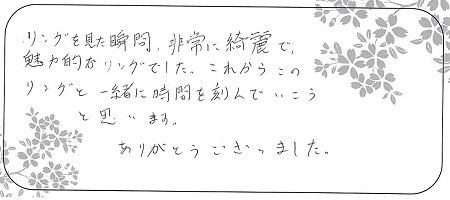 リングを見た瞬間、非常に綺麗で、
魅力的なリングでした。これからこの
リングと一緒に時間を刻んでいこう
と思います。
ありがとうございました。